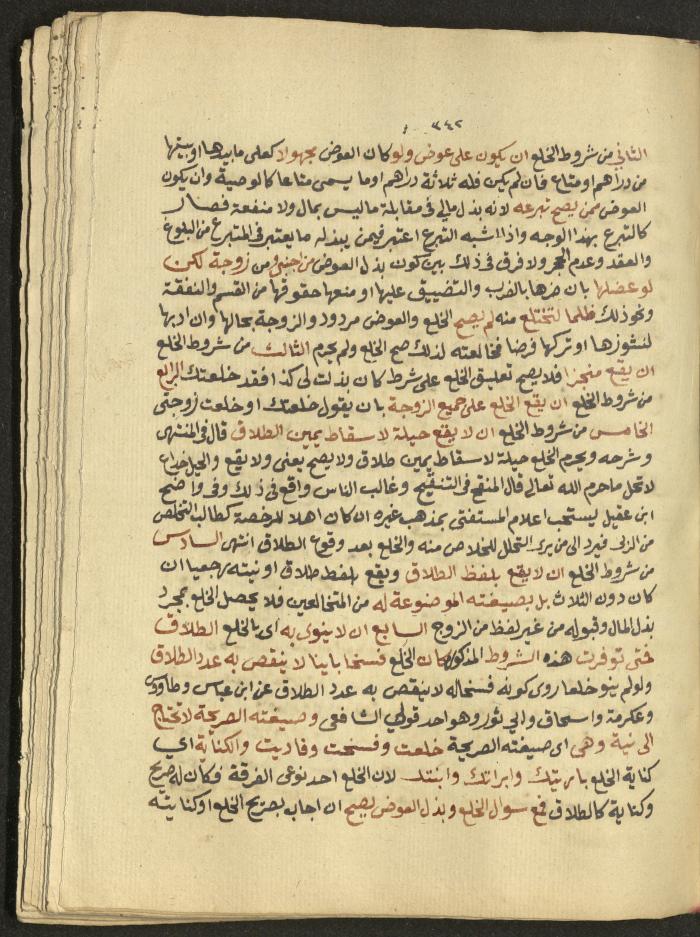 ٣٤٢
الثاني من شروط الخلع ان يكون على عوض ولو كان العوض مجهولا كعلى ما بيدها او بيتها
من دراهم او متاع فان لم يكن فله ثلاثة دراهم او ما يسمى متاعا كالوصية وان يكون
العوض ممن يصح تبرعه لانه بذل مال في مقابلة ما ليس بمال ولا منفعة فصار
كالتبرع بهذا الوجه واذا اشبه التبرع اعتبر فيمن يبذله ما يعتبر في المتبرع من البلوغ
والعقد وعدم الحجر ولا فرق في ذلك بين كون بذل العوض من اجنبي ومن زوجة لكن
لو عضلها بان ضرها بالضرب والتضييق عليها او منعها حقوقها من القسم والنفقة
ونحو ذلك ظلما لتختلع منه لم يصح الخلع والعوض مردود والزوجة بحالها وان ادبها
لنشوزها او تركها فرضا فخالعته لذلك صح الخلع ولم يحرم الثالث من شروط الخلع
ان يقع منجزا فلا يصح تعليق الخلع على شرط كان بذلت لي كذا فقد خلعتك الرابع
من شروط الخلع ان يقع الخلع على جميع الزوجة بان يقول خلعتك او خلعت زوجتي
الخامس من شروط الخلع ان لا يقع حيلة لاسقاط يمين الطلاق قال في المنتهى
وشرحه ويحرم الخلع حيلة لاسقاط يمين طلاق ولا يصح يعني ولا يقع والحيل خداع
لا تحل ما حرم الله تعالى قال المنقح في التنقيح وغالب الناس واقع في ذلك وفي واضح
ابن عقيل يستحب اعلام المستفتى بمذهب غيره ان كان اهلا للرخصة كطالب التخلص
من الربى فيرد الى من يرى التحلل للخلاص منه والخلع بعد وقوع الطلاق انتهى السادس
من شروط الخلع ان لا يقع بلفظ الطلاق ويقع بلفظ طلاق او نيته رجعيا ان
كان دون الثلاث بل بصيغته الموضوعة له من المتخالعين فلا يحصل الخلع بمجرد
بذل المال وقبوله من غير لفظ من الزوج السابع ان لا ينوى به اى بالخلع الطلاق
فمتى توفرت هذه الشروط المذكورة كان الخلع فسخا باينا لا ينقص به عدد الطلاق
ولو لم ينو خلعا روى كونه فسخا له لا ينقص به عدد الطلاق عن ابن عباس وطاووس
وعكرمة واسحاق وابي ثور وهو احد قولي الشافعي وصيغته الصريحة لا تحتاج
الى نية وهي اى صيغته الصريحة خلعت وفسخت وفاديت والكناية اي
كناية الخلع باريتك وابراتك وابنتك لان الخلع احد نوعي الفرقة فكان له صريح
وكناية كالطلاق فمع سوال الخلع وبذل العوض يصح ان اجاب بصريح الخلع او كنايته